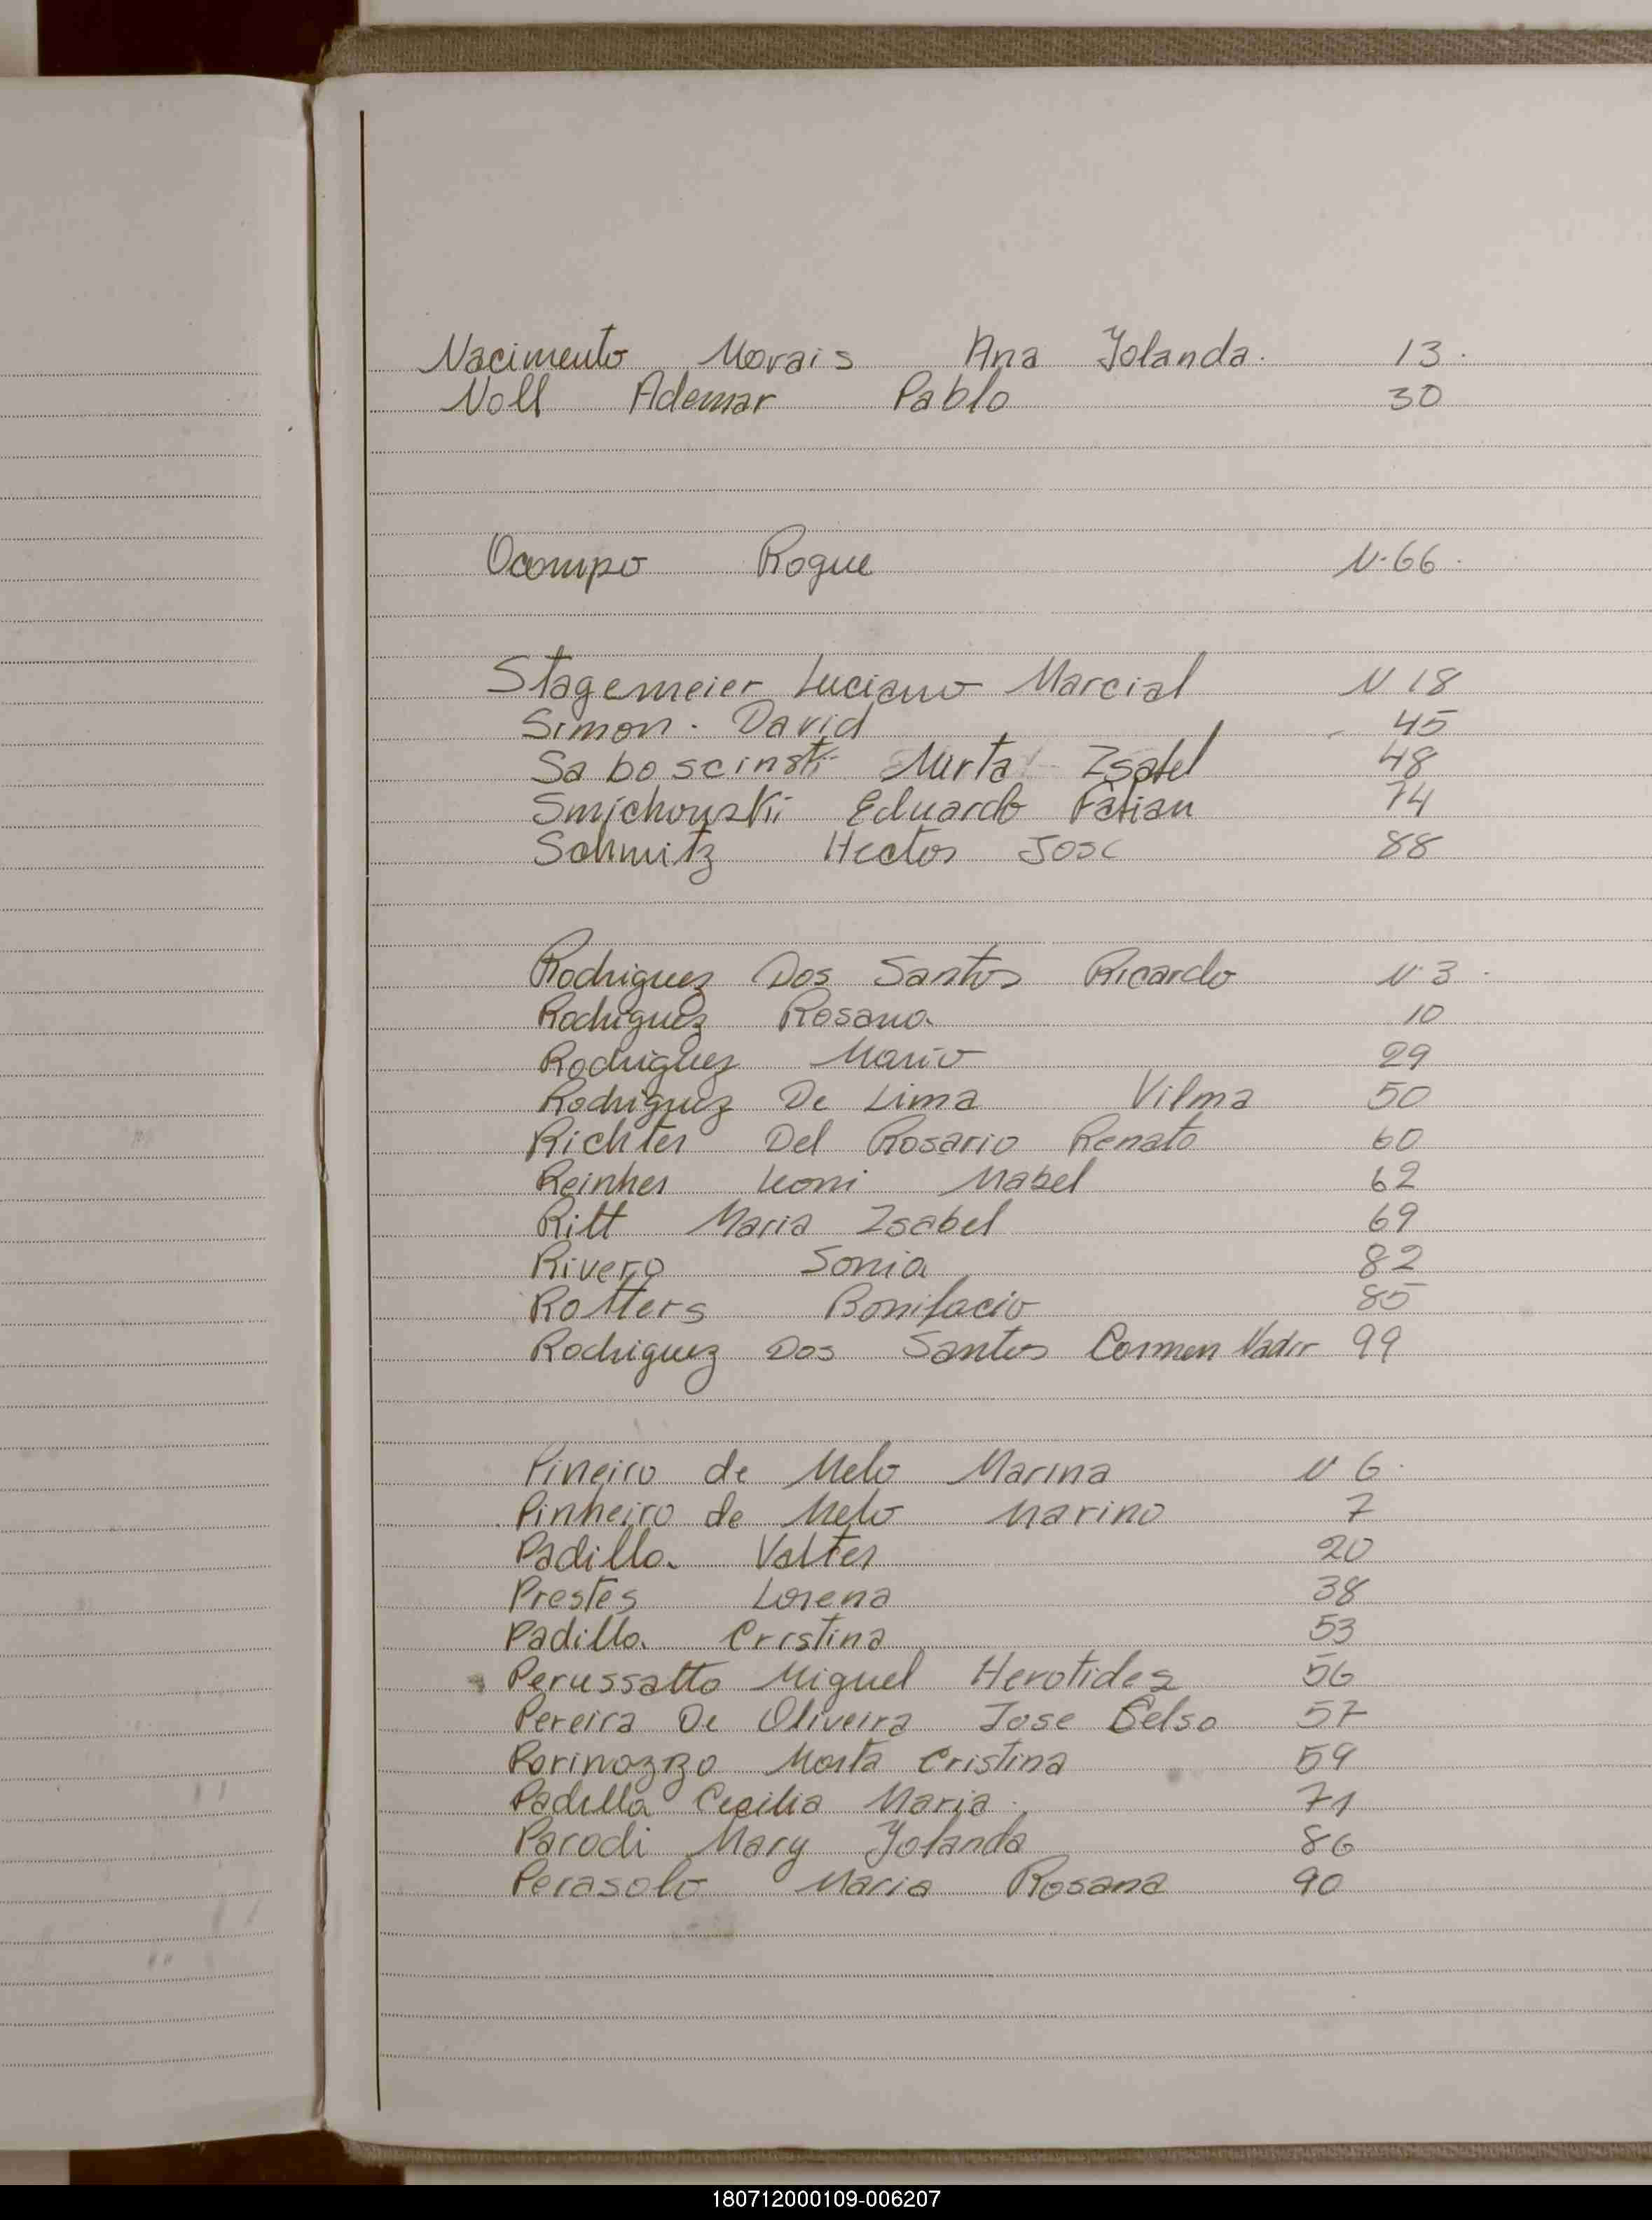 Nacimento Morais Ana Yolanda. 13.
Noll Ademar Pablo 30
Ocampo Roque N. 66.
Stagemeier Luciano Marcial N 18
Simon. David 45
Saboscinski Mirta Isabel 48
Smichowski Eduardo Fabian 74
Schmitz Hector Jose 88
Rodriguez Dos Santos Ricardo N. 3.
Rodriguez Rosana 10
Rodriguez Mario 29
Rodriguez De Lima Vilma 50
Richter Del Rosario Renato 60
Reinher Leoni Mabel 62
Ritt Maria Isabel 69
Rivero Sonia 82
Rotters Bonifacio 85
Rodriguez Dos Santos Carmen Nadir 99
Pineiro de Melo Marina N 6.
Pinheiro de Melo Marino 7
Padilla Valter 20
Prestes Lorena 38
Padilla Cristina 53
Perussatto Miguel Herotides 56
Pereira De Oliveira Jose Celso 57
Marta Cristina 59
Padilla Cecilia Maria. 71
Parodi Mary Yolanda 86
Perasolo Maria Rosana 90
180712000109-006207